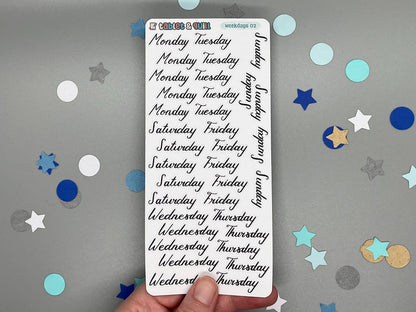 TABLET & QUILL workdays 02
Monday Tuesday
Monday Tuesday
Monday Tuesday
Monday Tuesday
Monday Tuesday
Saturday Friday
Saturday Friday
Saturday Friday
Saturday Friday
Saturday Friday
Wednesday Thursday
Wednesday Thursday
Wednesday Thursday
Wednesday Thursday
Wednesday Thursday
Sunday
Sunday
Sunday
Sunday
Sunday